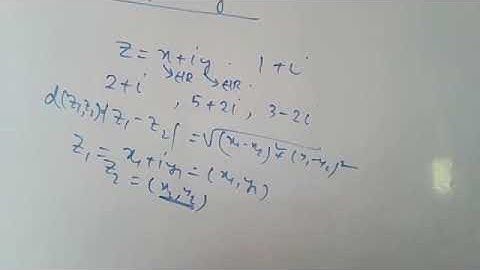 z = x + iy . 1 + i
→∈IR →∈IR
2 + i , 5 + 2i , 3 - 2i
d(z₁, z₂) = |z₁ - z₂| = √(x₁ - x₂)² + (y₁ - y₂)²
z₁ = x₁ + iy₁ = (x₁, y₁)
z₂ = (x₂, y₂)